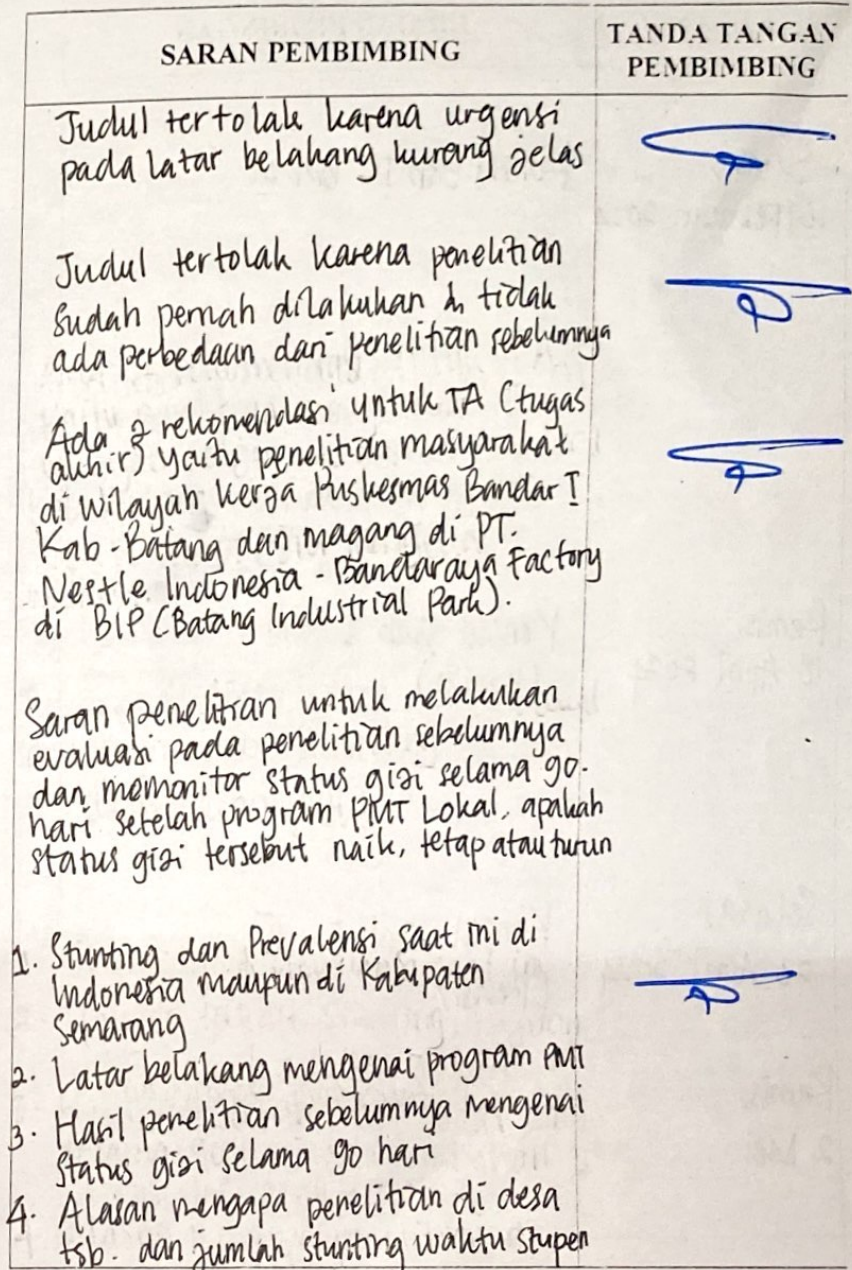 SARAN PEMBIMBING
TANDA TANGAN
PEMBIMBING
Judul tertolak karena urgensi
pada latar belakang kurang jelas
Judul tertolak karena penelitian
sudah pernah dilakukan & tidak
ada perbedaan dari penelitian sebelumnya
Ada 2 rekomendasi untuk TA (tugas
akhir) yaitu penelitian masyarakat
di wilayah kerja Puskesmas Bandar I
Kab. Batang dan magang di PT.
Nestle Indonesia - Bandaraya Factory
di BIP (Batang Industrial Park).
Saran penelitian untuk melakukan
evaluasi pada penelitian sebelumnya
dan memonitor status gizi selama 90.
hari setelah program PMT Lokal, apakah
status gizi tersebut naik, tetap atau turun
1. Stunting dan Prevalensi saat ini di
Indonesia maupun di Kabupaten
Semarang
2. Latar belakang mengenai program PMT
3. Hasil penelitian sebelumnya mengenai
status gizi selama 90 hari
4. Alasan mengapa penelitian di desa
tsb. dan jumlah stunting waktu stupen